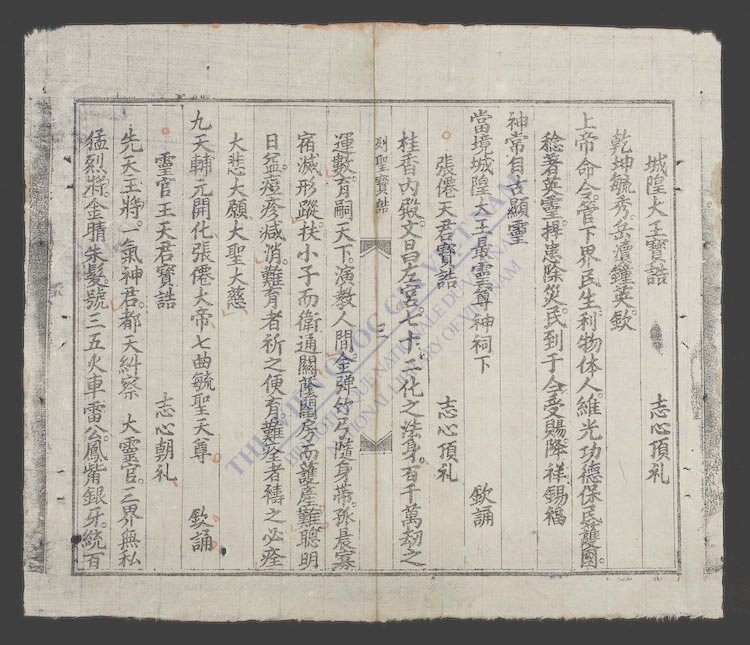 城隍大王寶誥 志心頂礼
乾坤毓秀岳瀆鐘英欽
上帝命令管下界民生利物体人維光功德保民護國
稔著英靈捍患除災民到于今受賜降祥錫福
神常自古顯靈
當境城隍大王最靈尊神祠下 欽誦
張僊天君寶誥 志心頂礼
桂香內殿文昌左宮七十二化之法身百千萬劫之
列聖寶誥 三
運數育嗣天下演教人間金弹竹弓隨身帶孤晨寡
宿滅形蹤扶小子而衛通關蔭閨房而護產難聰明
日益痘疹減消難育者祈之便育難痊者禱之必痊
大悲大願大聖大慈
九天輔元開化張僊大帝七曲毓聖天尊 欽誦
靈官王天君寶誥 志心朝礼
先天王將一氣神君都天糾察大靈官三界無私
猛烈將金睛朱髮號三五火車雷公鳳觜銀牙統百
THƯ VIỆN QUỐC GIA VIỆT NAM
BIBLIOTHEQUE NATIONALE DU VIETNAM
NATIONAL LIBRARY OF VIETNAM